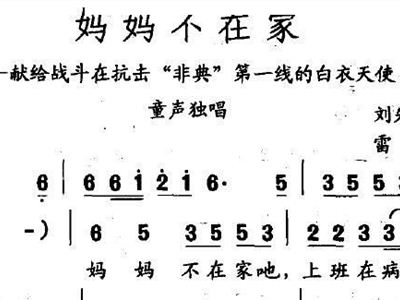 妈妈不在家
—献给战斗在抗击“非典”第一线的白衣天使
童声独唱
刘
雷
6 | 6 6 1 2 1 6· 5 | 3 5 5
-) | 6 5 3 5 5 3 | 2 2 3 3
妈 妈 不在家吔，上班在病